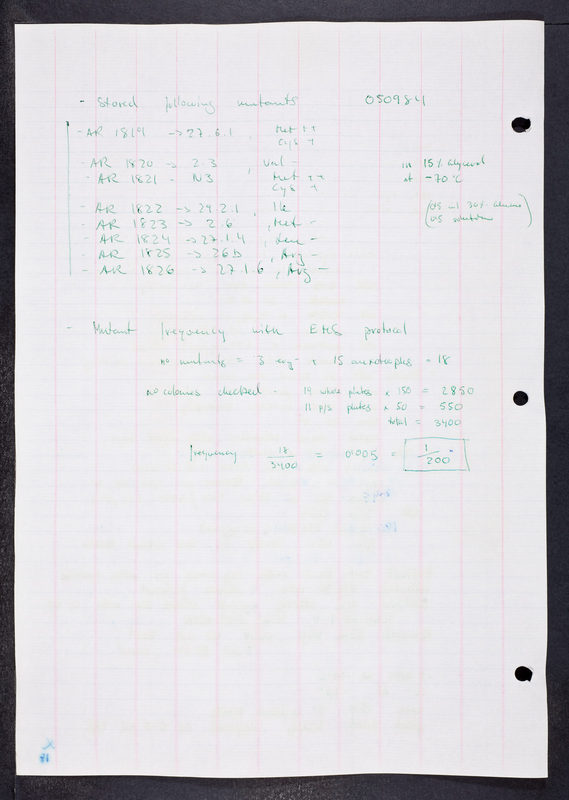 - Stored following mutants 050984
- AR 1819 -> 27.6.1 Met ++
Cys +
- AR 1820 -> 2.3 , Val -
- AR 1821 - N3 , Met ++
Cys +
in 15% glycerol
at -70°C
- AR 1822 -> 24.2.1 , Ile
- AR 1823 -> 2.6 , Met -
- AR 1824 -> 27.1.4 , Leu -
- AR 1825 -> 26B , Arg -
- AR 1826 -> 27.1.6 , Arg -
(0.5 ml 30%
0.5
- Mutant frequency with EMS protocol
no mutants = 3 + 15 auxotrophs = 18
no colonies checked - 19 whole plates x 150 = 2850
11 p/s plates x 50 = 550
total = 3400
frequency 18/3400 = 0.005 = 1/200